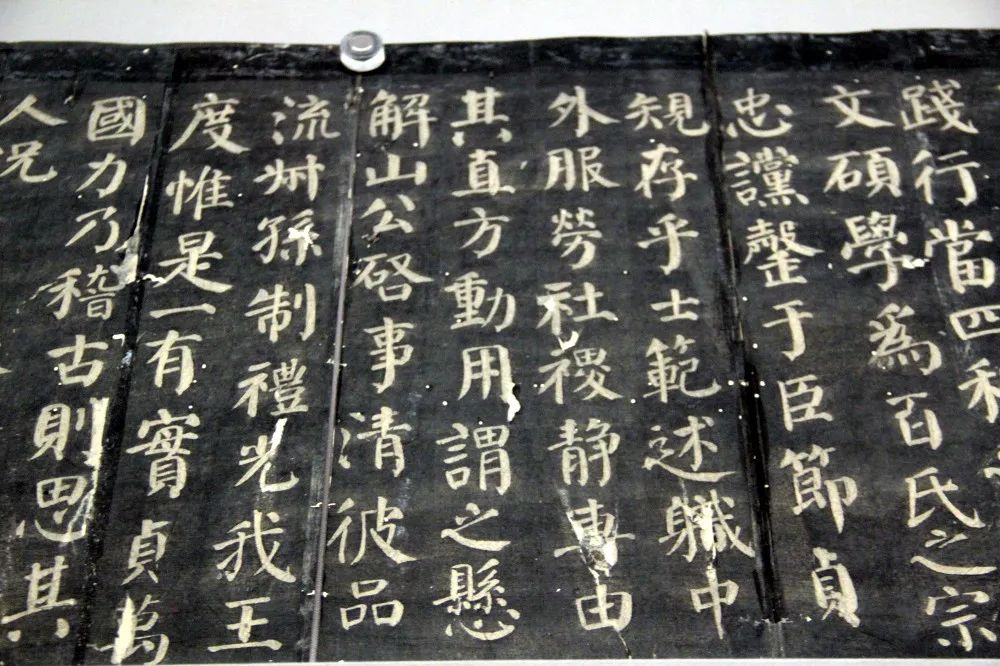 踐行當四科
文碩學爲百氏之宗
忠讜罄于臣節貞
規存乎士範述職中
外服勞社稷静專由
其直方動用謂之懸
解山公啓事清彼品
流叔孫制禮光我王
度惟是一有實貞萬
國力乃稽古則思其
人況